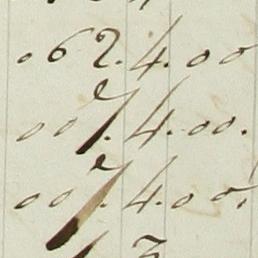 062.4.00
007.4.00.
007.4.00.